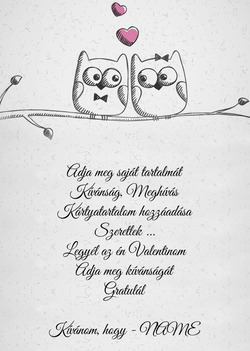 Adja meg saját tartalmát
Kívánság, Meghívás
Kártyatartalom hozzáadása
Szeretlek ...
Legyél az én Valentinom
Adja meg kívánságát
Gratulál
Kívánom, hogy - NAME